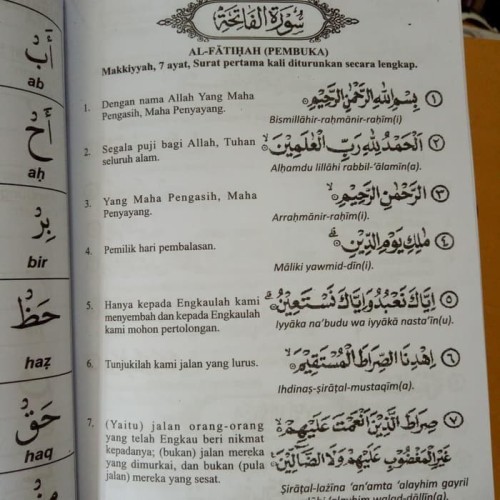 سُوْرَةُ الْفَاتِحَةِ
AL-FĀTIḤAH (PEMBUKA)
Makkiyyah, 7 ayat, Surat pertama kali diturunkan secara lengkap.
1. Dengan nama Allah Yang Maha
Pengasih, Maha Penyayang.
بِسْمِ اللهِ الرَّحْمٰنِ الرَّحِيْمِ ١
Bismillāhir-raḥmānir-raḥīm(i)
2. Segala puji bagi Allah, Tuhan
seluruh alam.
اَلْحَمْدُ لِلّٰهِ رَبِّ الْعٰلَمِيْنَ ٢
Alḥamdu lillāhi rabbil-'ālamīn(a)
3. Yang Maha Pengasih, Maha
Penyayang.
الرَّحْمٰنِ الرَّحِيْمِ ٣
Arraḥmānir-raḥīm(i).
4. Pemilik hari pembalasan.
مٰلِكِ يَوْمِ الدِّيْنِ ٤
Māliki yawmid-dīn(i).
5. Hanya kepada Engkaulah kami
menyembah dan kepada Engkaulah
kami mohon pertolongan.
اِيَّاكَ نَعْبُدُ وَاِيَّاكَ نَسْتَعِيْنُ ٥
Iyyāka na'budu wa iyyākā nasta'īn(u).
6. Tunjukilah kami jalan yang lurus.
اِهْدِنَا الصِّرَاطَ الْمُسْتَقِيْمَ ٦
Ihdinaṣ-ṣirāṭal-mustaqīm(a).
7. (Yaitu) jalan orang-orang
yang telah Engkau beri nikmat
kepadanya; (bukan) jalan mereka
yang dimurkai, dan bukan (pula
jalan) mereka yang sesat.
صِرَاطَ الَّذِيْنَ اَنْعَمْتَ عَلَيْهِمْ ٧
غَيْرِ الْمَغْضُوْبِ عَلَيْهِمْ وَلَا الضَّآلِّيْنَ
Ṣirāṭal-lażīna 'an'amta 'alayhim gayril
أَبْ
ab
أَحْ
aḥ
بِرْ
bir
حَظْ
haẓ
حَقْ
haq